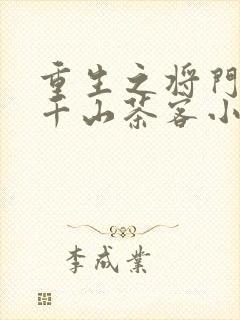 重生之将门
千山茶客小
李成業